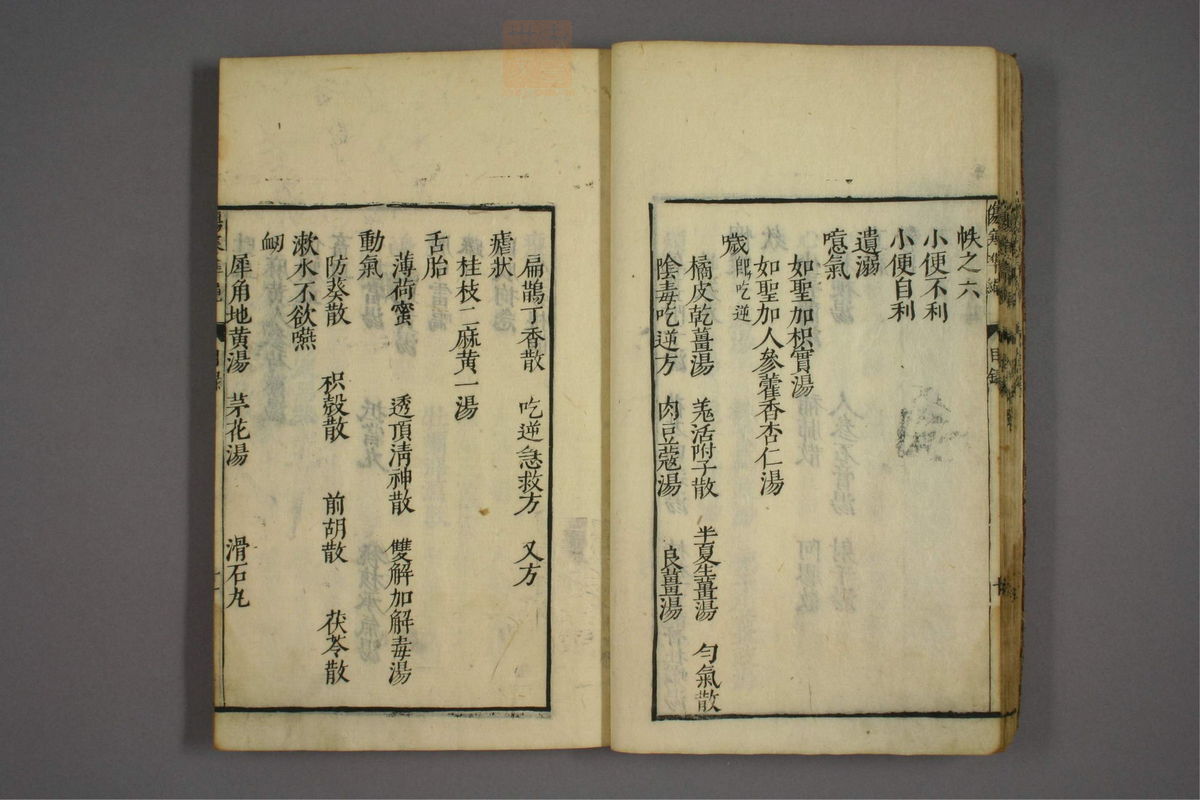 帙之六
小便不利
小便自利
遺溺
噫氣
如聖加枳實湯
如聖加人參藿香杏仁湯
噦 卽吃逆
橘皮乾薑湯 羗活附子散 半夏生薑湯 勻氣散
陰毒吃逆方 肉豆蔻湯 良薑湯
目錄
扁鵲丁香散 吃逆急救方 又方
瘧狀
桂枝二麻黄一湯
舌胎
薄荷蜜 透頂淸神散 雙解加解毒湯
動氣
防葵散 枳殼散 前胡散 茯苓散
漱水不欲嚥
衂
犀角地黄湯 茅花湯 滑石丸